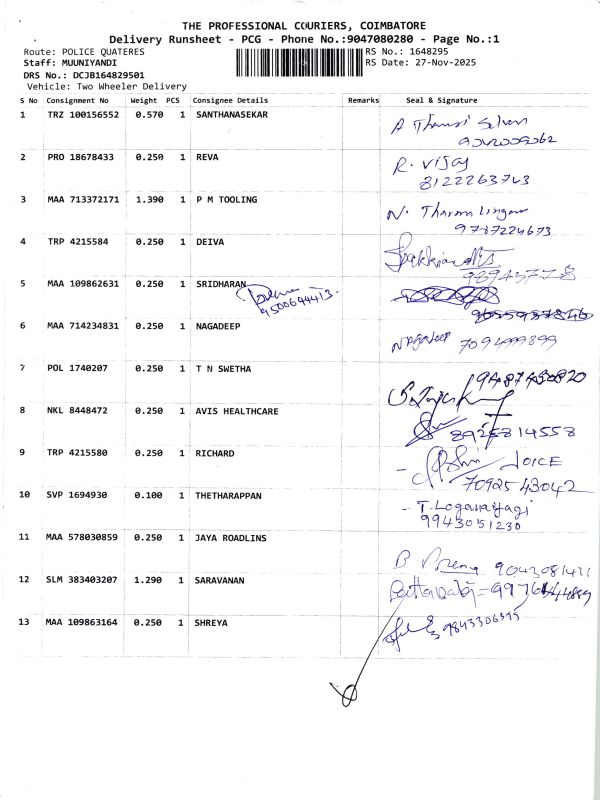 THE PROFESSIONAL COURIERS, COIMBATORE
Delivery Runsheet - PCG - Phone No.:9047080280 - Page No.:1
Route: POLICE QUATERES RS No.: 1648295
Staff: MUUNIYANDI RS Date: 27-Nov-2025
DRS No.: DCJB164829501
Vehicle: Two Wheeler Delivery
S No Consignment No Weight PCS Consignee Details Remarks Seal & Signature
1 TRZ 100156552 0.570 1 SANTHANASEKAR
A
2 PRO 18678433 0.250 1 REVA
R. Vijay
8122263743
3 MAA 713372171 1.390 1 P M TOOLING
N. Tharma Lingam
9787224673
4 TRP 4215584 0.250 1 DEIVA
5 MAA 109862631 0.250 1 SRIDHARAN
9500644413
6 MAA 714234831 0.250 1 NAGADEEP
Nagadeep 7094999899
7 POL 1740207 0.250 1 T N SWETHA
9487430820
8 NKL 8448472 0.250 1 AVIS HEALTHCARE
8925814558
9 TRP 4215580 0.250 1 RICHARD
JOICE
7092543042
10 SVP 1694930 0.100 1 THETHARAPPAN
- T. Loganayagi
9943051230
11 MAA 578030859 0.250 1 JAYA ROADLINS
B 9043081421
12 SLM 383403207 1.290 1 SARAVANAN
13 MAA 109863164 0.250 1 SHREYA